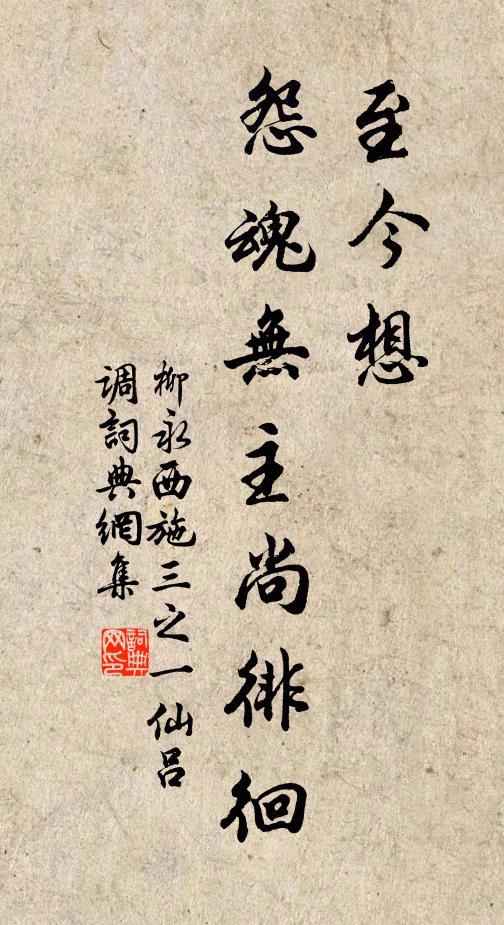 至今想
怨魂無主尚徘徊
柳永西施三之一仙吕
调詞典網集
詞典
网印